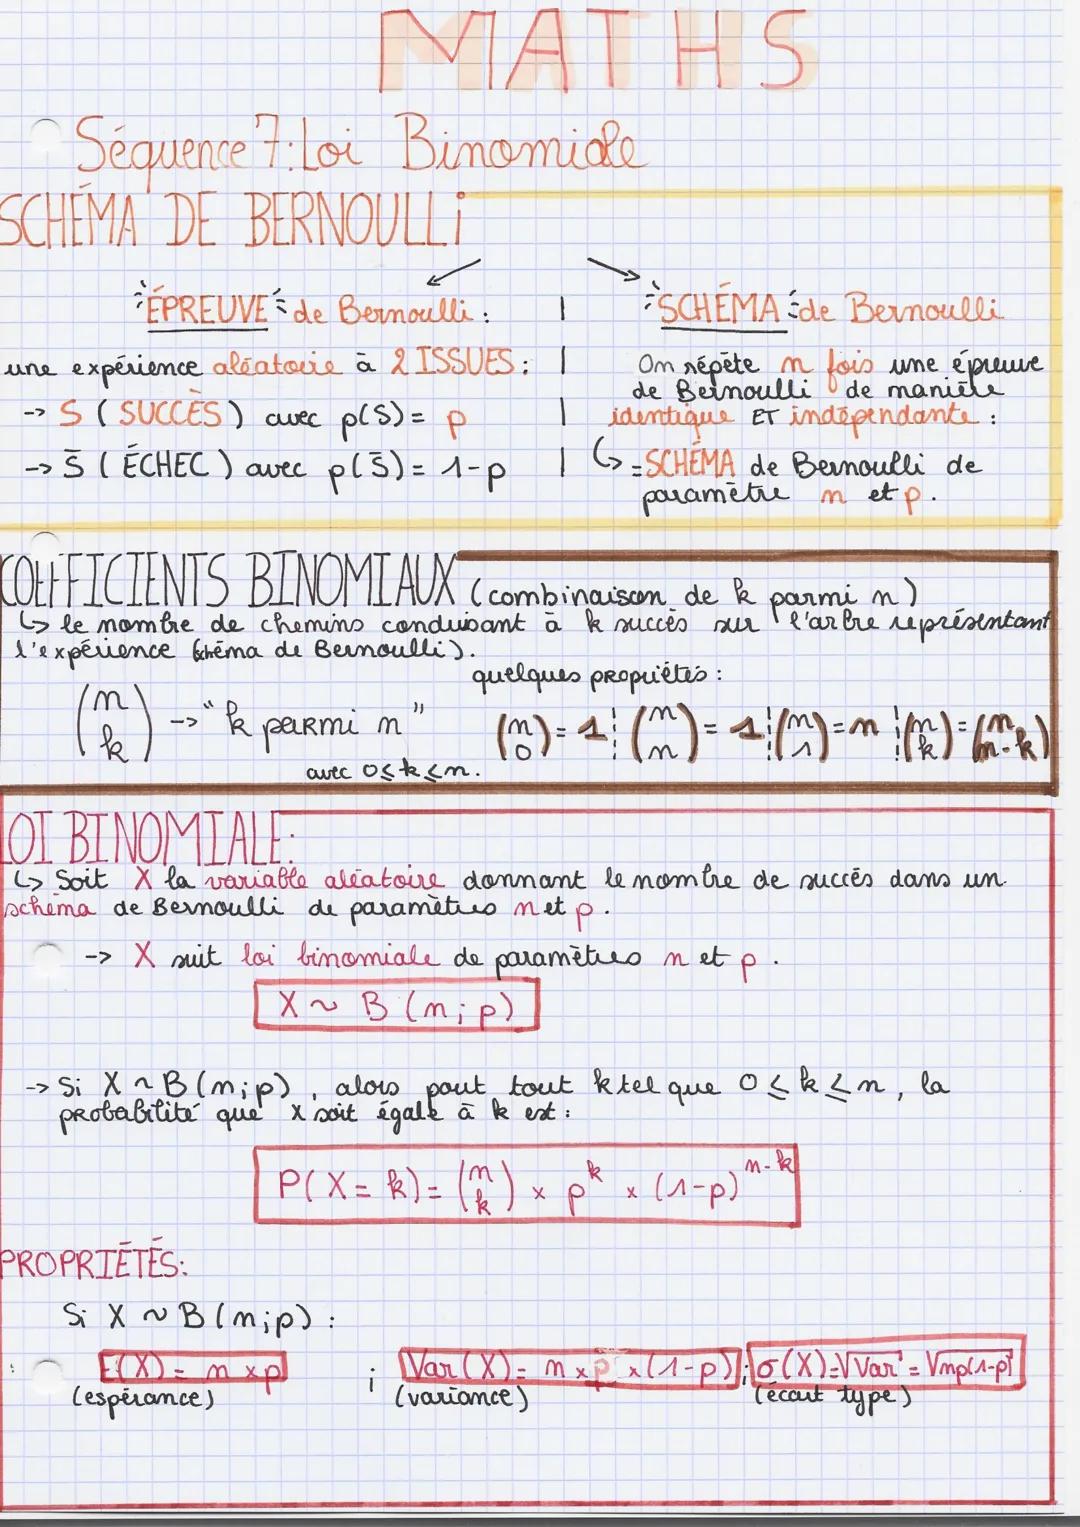 MATHS
Séquence 7: Loi Binomiale
SCHÉMA DE BERNOULLi
ÉPREUVE de Bernoulli :
une expérience aléatoire à 2 ISSUES :
-> S ( SUCCÈS ) avec p(S) = p
-> S̄ ( ÉCHEC ) avec p(S̄) = 1-p
SCHÉMA de Bernoulli
On répète n fois une épreuve
de Bernoulli de manière
identique ET indépendante :
↳ = SCHÉMA de Bernoulli de
paramètre n et p.
COEFFICIENTS BINOMIAUX (combinaison de k parmi n)
↳ le nombre de chemins conduisant à k succès sur l'arbre représentant
l'expérience (schéma de Bernoulli).
quelques propriétés :
(n k) -> "k parmi n"
avec 0 ≤ k ≤ n.
(n 0) = 1 ¦ (n n) = 1 ¦ (n 1) = n ¦ (n k) = (n n-k)
LOI BINOMIALE:
↳ Soit X la variable aléatoire donnant le nombre de succès dans un
schéma de Bernoulli de paramètres n et p.
-> X suit loi binomiale de paramètres n et p.
X ~ B (n ; p)
-> Si X ~ B (n ; p), alors pout tout k tel que 0 ≤ k ≤ n, la
probabilité que X soit égale à k est :
P( X = k) = (n k) × p^k × (1-p)^n-k
PROPRIÉTÉS:
Si X ~ B (n;p) :
E(X) = n × p ; Var (X) = n × p × (1-p) ; σ(X) = √Var = √np(1-p)
(espérance) (variance) (écart type)